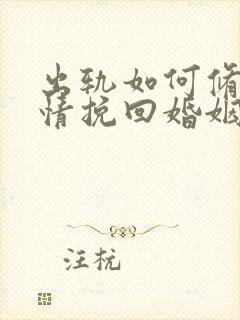 出轨如何修
情挽回婚姻
汪杭